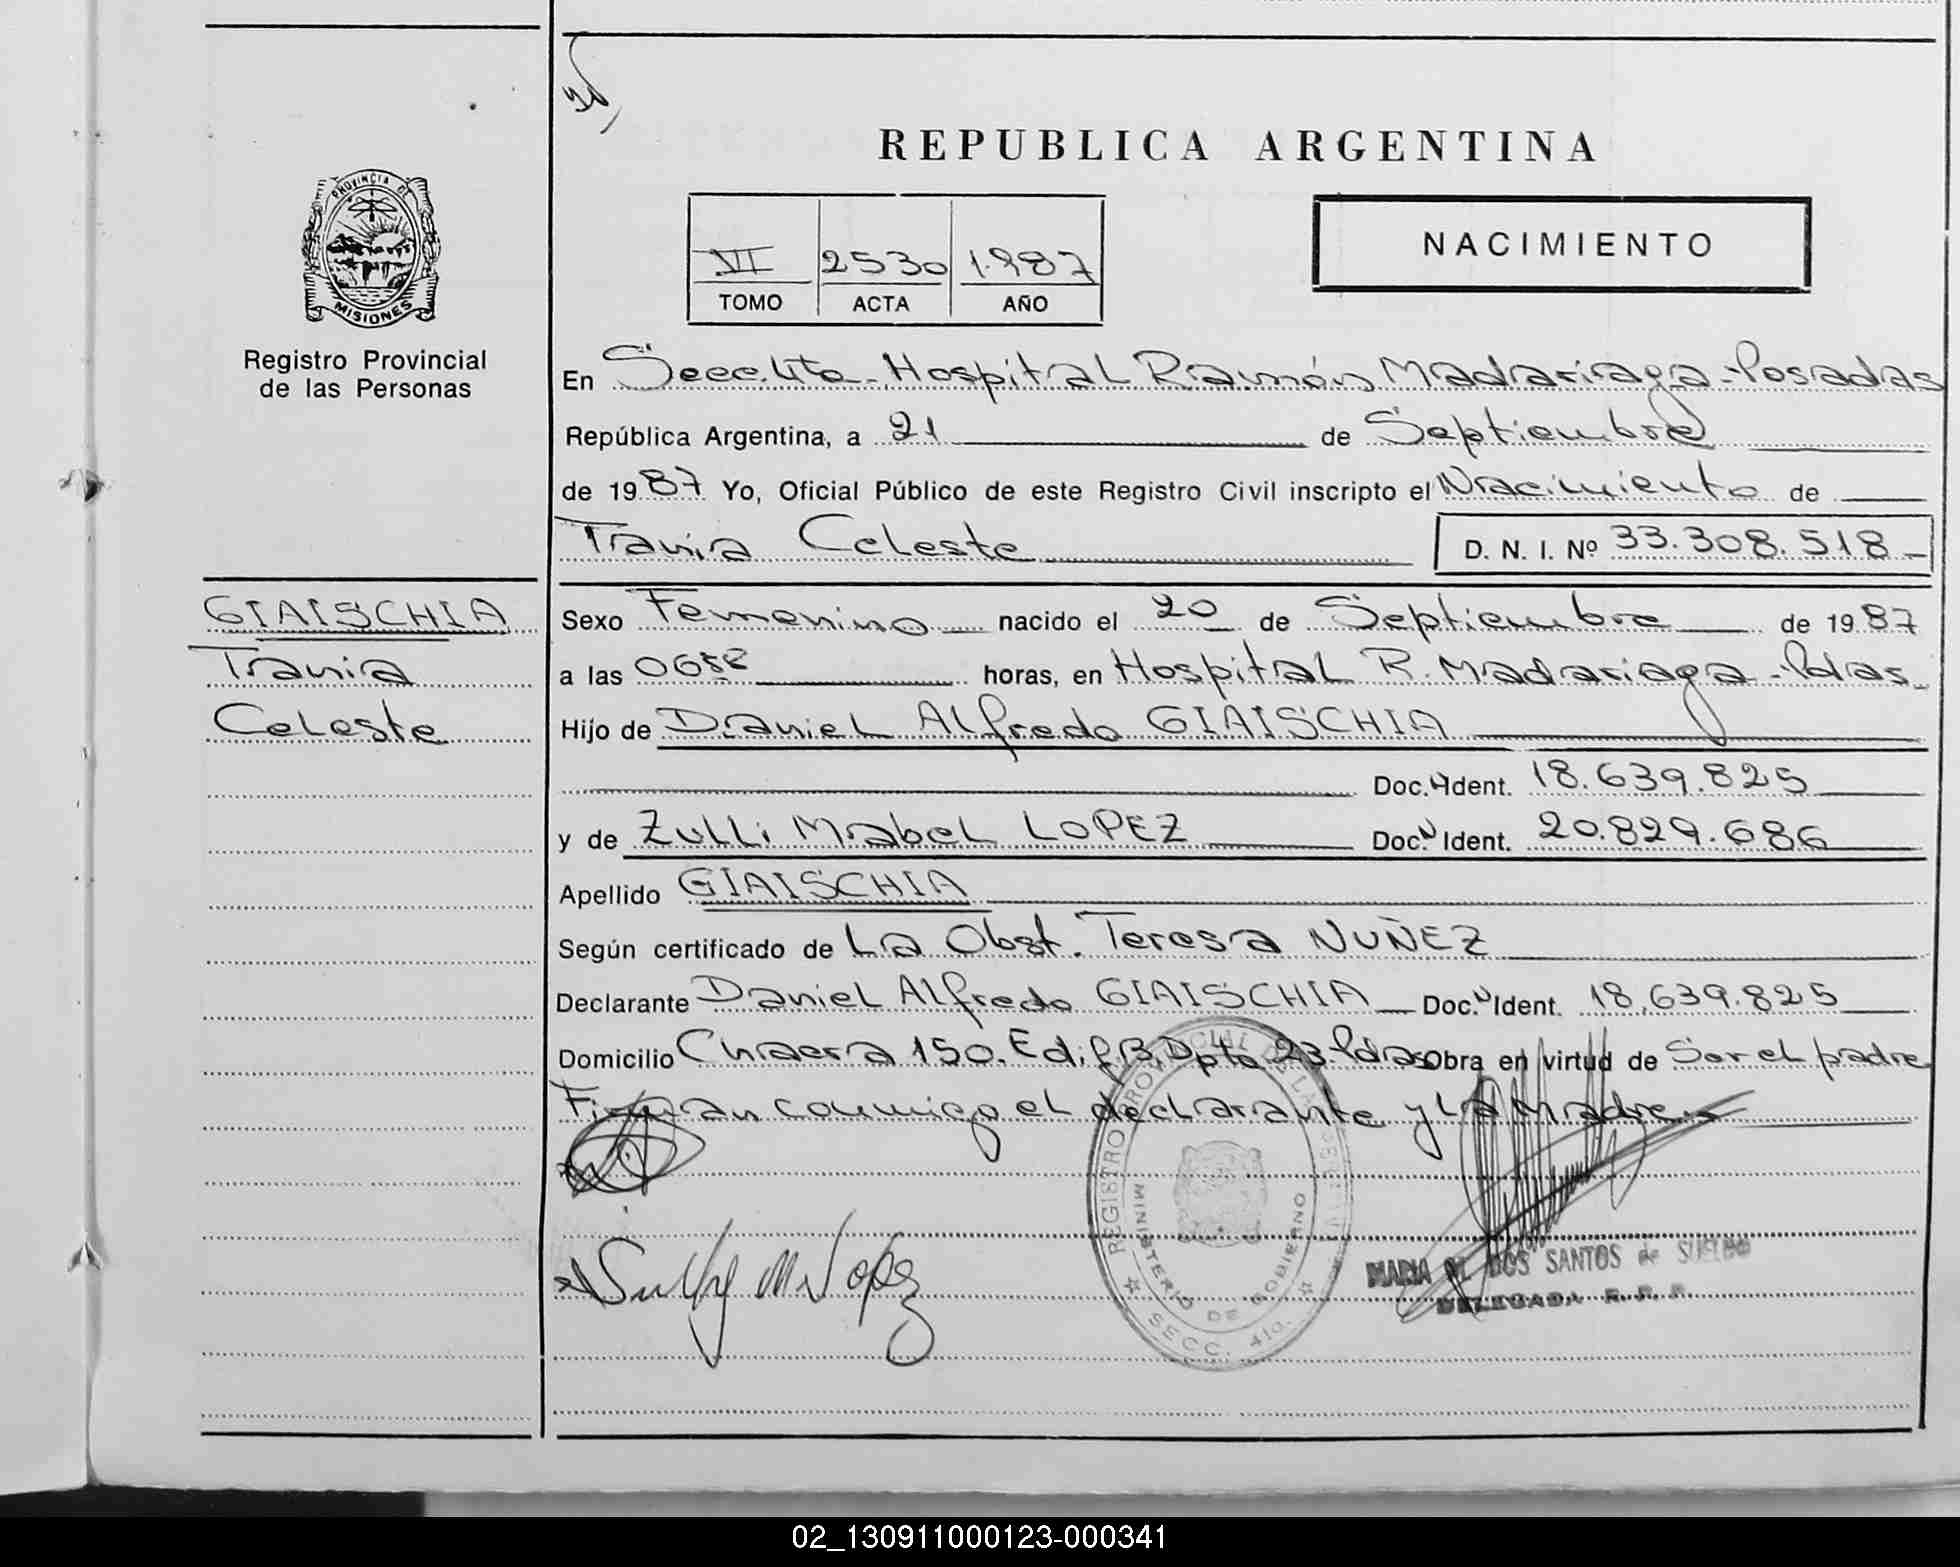 REPUBLICA ARGENTINA
PROVINCIA DE
MISIONES
Registro Provincial
de las Personas
VI 2530 1.987
TOMO ACTA AÑO
NACIMIENTO
En Secc. 4ta - Hospital Ramón Madariaga - Posadas
República Argentina, a 21 de Septiembre
de 1987 Yo, Oficial Público de este Registro Civil inscripto el Nacimiento de
Tania Celeste D. N. I. Nº 33.308.518-
GIAISCHIA
Tania
Celeste
Sexo Femenino nacido el 20 de Septiembre de 1987
a las horas, en Hospital R. Madariaga - Pdas.
Hijo de Daniel Alfredo GIAISCHIA
Doc. Ident. 18.639.825
y de Zulli Mabel LOPEZ Doc. Ident. 20.829.686
Apellido GIAISCHIA
Según certificado de La Obst. Teresa NUÑEZ
Declarante Daniel Alfredo GIAISCHIA Doc. Ident. 18.639.825
Domicilio Chacra 150. Edif. B. Dpto 23. Pdas Obra en virtud de Ser el padre
Firman conmigo el declarante y la Madre.
REGISTRO PROVINCIAL DE LAS PERSONAS
MINISTERIO DE GOBIERNO
SECC. 4ta.
MARIA DOS SANTOS de SUELDO
DELEGADA R. P. P.
02_130911000123-000341